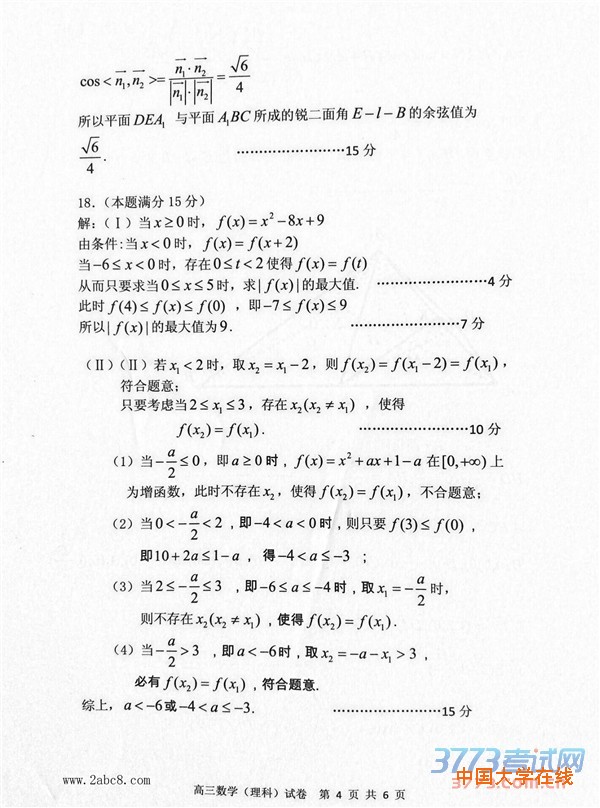 cos < n₁⃗, n₂⃗ >= (n₁⃗ · n₂⃗)/(|n₁⃗|·|n₂⃗|) = √6/4
所以平面 DEA₁ 与平面 A₁BC 所成的锐二面角 E − l − B 的余弦值为
√6/4. ……………………15 分
18.（本题满分 15 分）
解:（Ⅰ）当 x ≥ 0 时, f(x) = x² − 8x + 9
由条件:当 x < 0 时, f(x) = f(x+2)
当 −6 ≤ x < 0 时, 存在 0 ≤ t < 2 使得 f(x) = f(t)
从而只要求当 0 ≤ x ≤ 5 时, 求 | f(x) | 的最大值. ……………………4 分
此时 f(4) ≤ f(x) ≤ f(0) ，即 −7 ≤ f(x) ≤ 9
所以 | f(x) | 的最大值为 9. ……………………7 分
（Ⅱ）（Ⅱ）若 x₁ < 2 时, 取 x₂ = x₁ − 2, 则 f(x₂) = f(x₁ − 2) = f(x₁)，
符合题意;
只要考虑当 2 ≤ x₁ ≤ 3, 存在 x₂(x₂ ≠ x₁) ，使得
f(x₂) = f(x₁). ……………………10 分
（1）当 −a/2 ≤ 0, 即 a ≥ 0 时, f(x) = x² + ax + 1 − a 在 [0,+∞) 上
为增函数，此时不存在 x₂, 使得 f(x₂) = f(x₁)，不合题意;
（2）当 0 < −a/2 < 2 ，即 −4 < a < 0 时, 则只要 f(3) ≤ f(0)，
即 10 + 2a ≤ 1 − a ，得 −4 < a ≤ −3 ；
（3）当 2 ≤ −a/2 ≤ 3 ，即 −6 ≤ a ≤ −4 时，取 x₁ = −a/2 时,
则不存在 x₂(x₂ ≠ x₁)，使得 f(x₂) = f(x₁).
（4）当 −a/2 > 3 ，即 a < −6 时，取 x₂ = −a − x₁ > 3，
必有 f(x₂) = f(x₁)，符合题意.
综上，a < −6 或 −4 < a ≤ −3. ……………………15 分
3773考试网
www.2abc8.com
中国大学在线
高三数学（理科）试卷 第 4 页 共 6 页